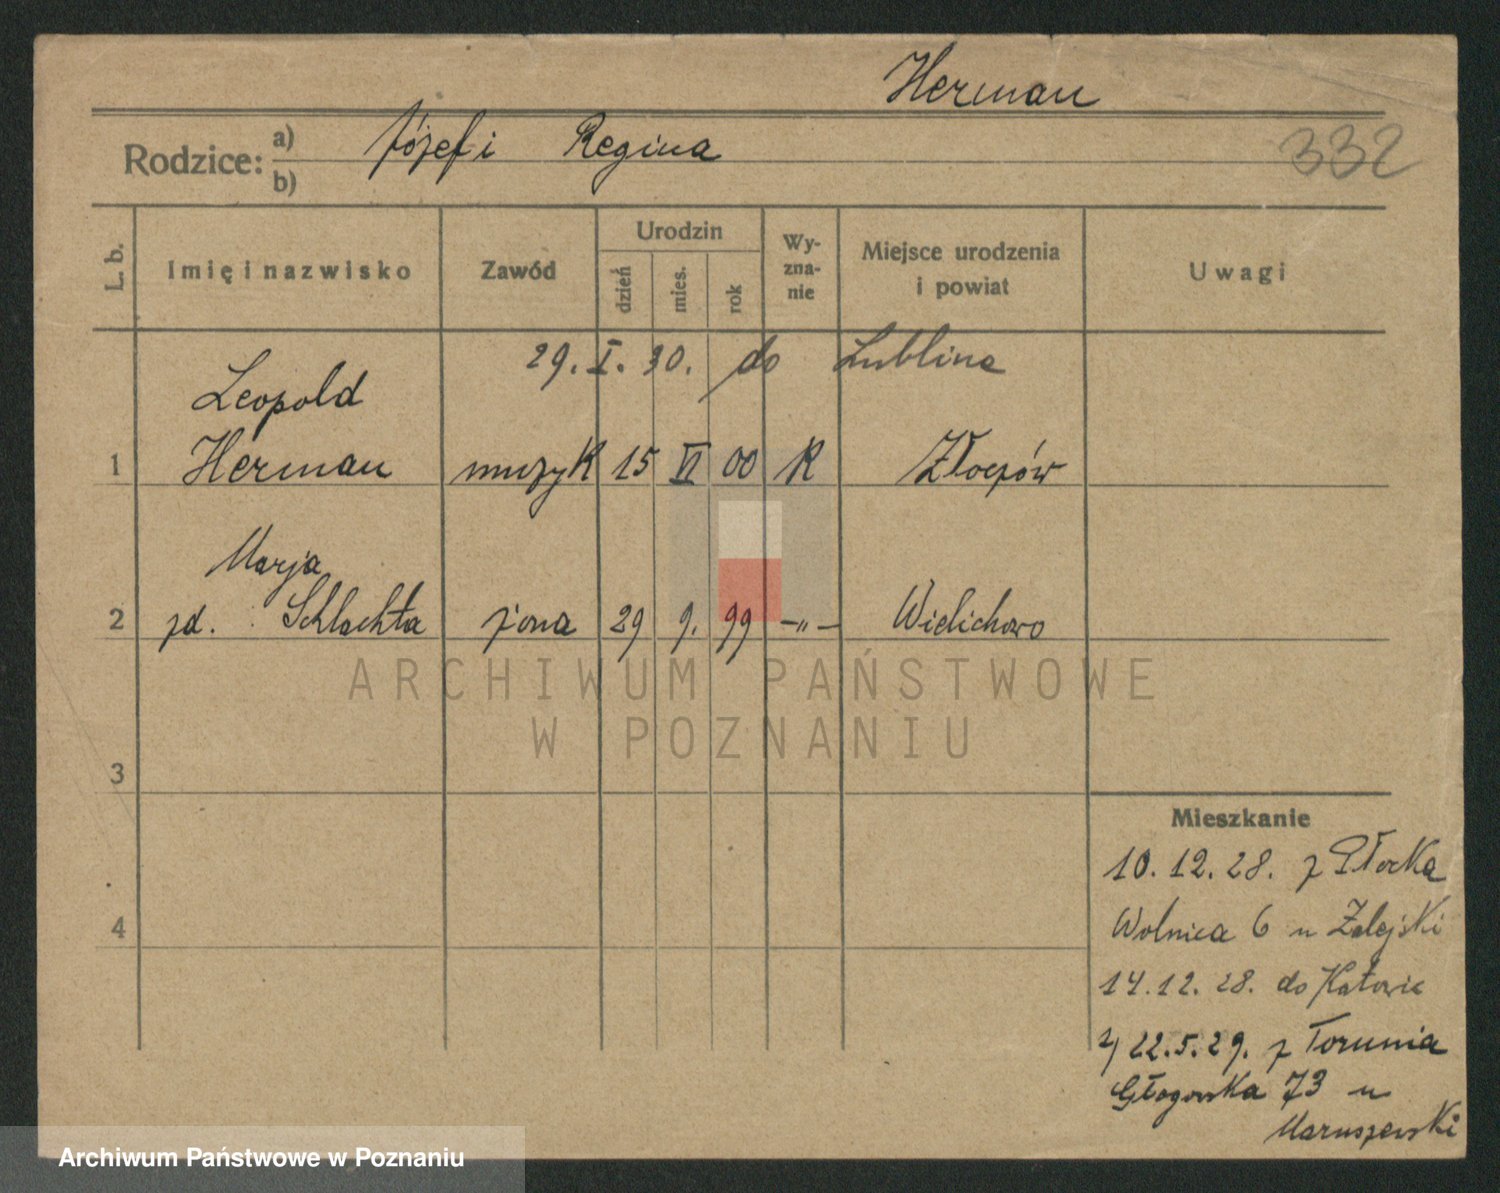 Herman
332
Rodzice: a) Józef i Regina
b)
L. b. Imię i nazwisko Zawód Urodzin dzień mies. rok Wy-zna-nie Miejsce urodzenia i powiat Uwagi
29. I. 30. do Lublina
Leopold
1 Herman muzyk 15 VI 00 R Złoczów
Marja
2 zd. Schlachta żona 29 9. 99 -„- Wielichowo
ARCHIWUM PAŃSTWOWE
W POZNANIU
3
Mieszkanie
10. 12. 28. z Płocka
4
Wolnica 6 u Zalejski
14. 12. 28. do Katowic
2) 22. 5. 29. z Torunia
Głogowska 73 u
Maruszewski
Archiwum Państwowe w Poznaniu